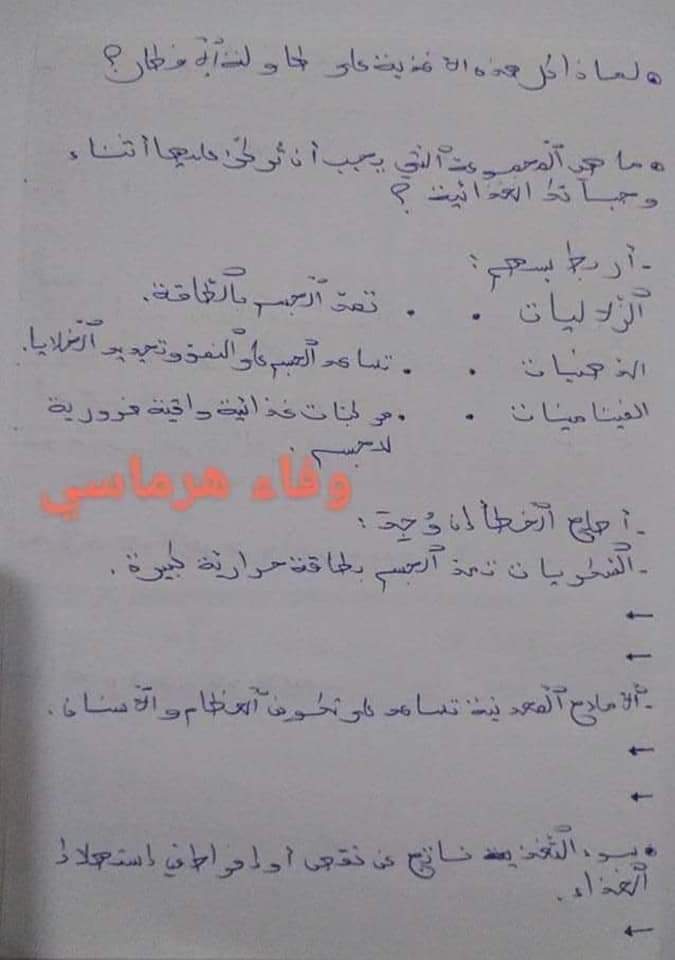 • لماذا كل هذه الأغذية على طاولة الإفطار؟
• ما هي المجموعة التي يجب أن نركز عليها أثناء
وجباتنا الغذائية ؟
- أربط بسهم :
الزلاليات • • تمد الجسم بالطاقة.
الدهنيات • • تساعد الجسم على النمو وتجديد الخلايا.
الفيتامينات • • مركبات غذائية واقية ضرورية
للجسم.
وفاء هرماسي
- أصلح الخطأ إن وُجِدَ :
- السكريات تمد الجسم بطاقة حرارية كبيرة .
←
←
- الأملاح المعدنية تساعد على تكوين العظام والأسنان .
←
←
• سوء التغذية ناتج عن نقص أو إفراط في استهلاك
الغذاء.
←